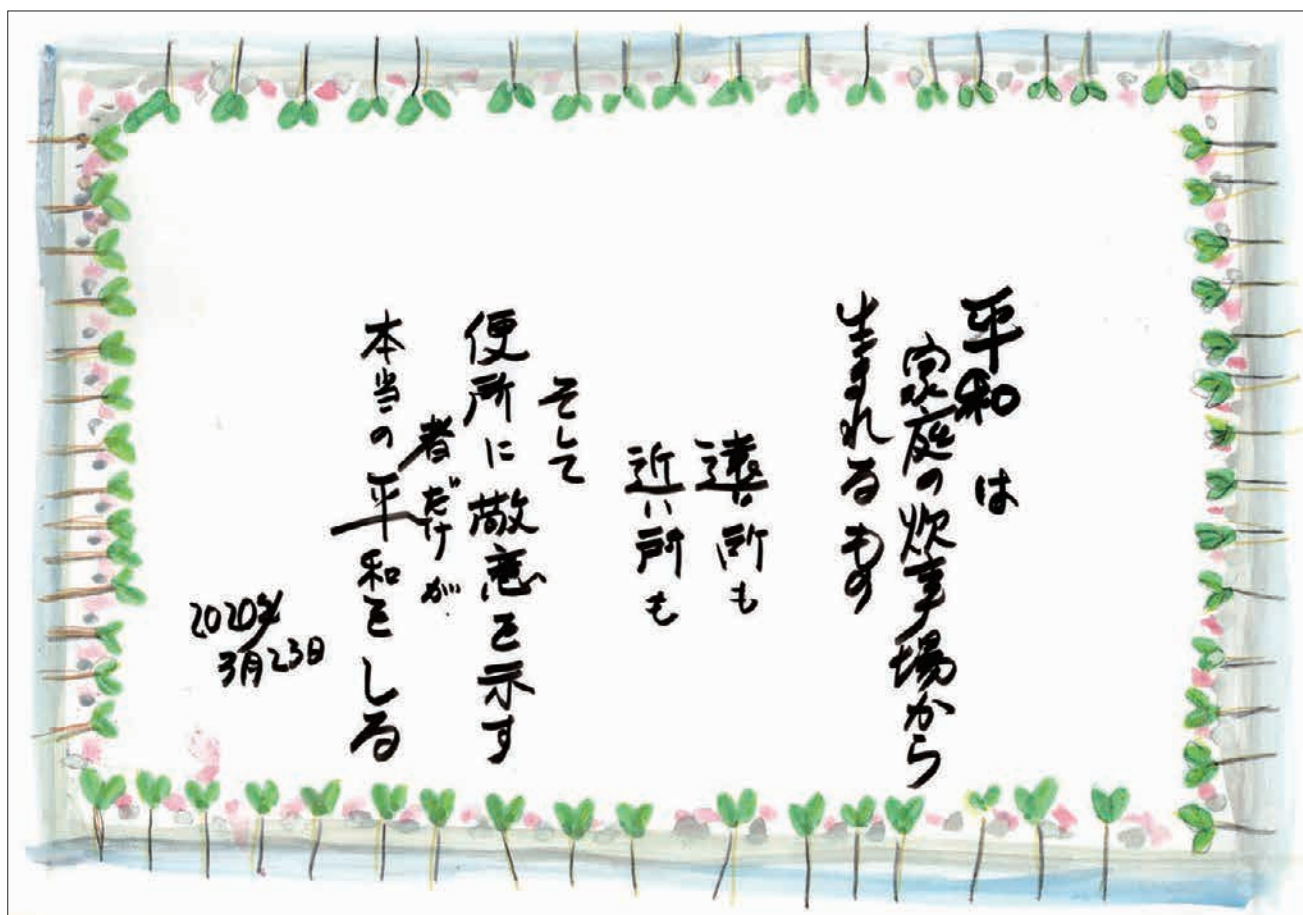 平和は
家庭の炊事場から
生まれるもの
遠い所も
近い所も
そして
便所に敬意を示す
者だけが
本当の平和をしる
2020年
3月23日